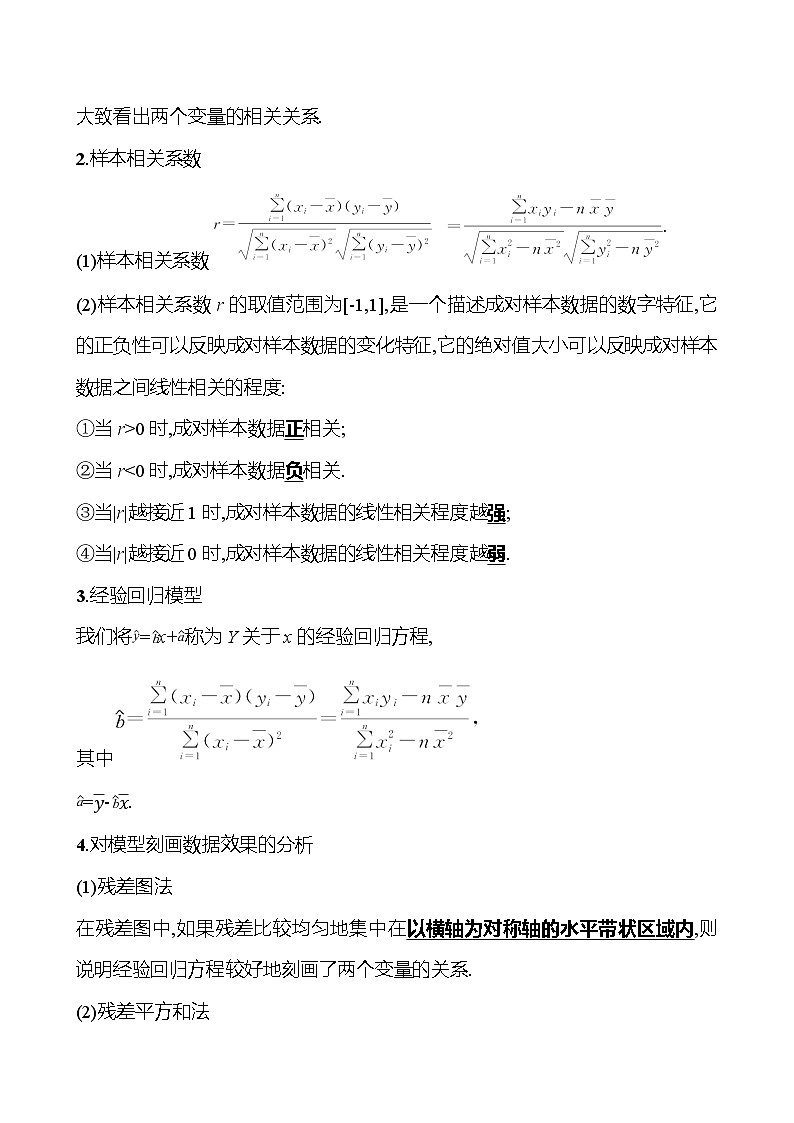 大致看出两个变量的相关关系.
2.样本相关系数
(1)样本相关系数 r=\frac{\sum_{i=1}^{n}(x_i-\overline{x})(y_i-\overline{y})}{\sqrt{\sum_{i=1}^{n}(x_i-\overline{x})^2}\sqrt{\sum_{i=1}^{n}(y_i-\overline{y})^2}}=\frac{\sum_{i=1}^{n}x_iy_i-n\overline{x}\,\overline{y}}{\sqrt{\sum_{i=1}^{n}x_i^2-n\overline{x}^2}\sqrt{\sum_{i=1}^{n}y_i^2-n\overline{y}^2}}.
(2)样本相关系数 r 的取值范围为[-1,1],是一个描述成对样本数据的数字特征,它
的正负性可以反映成对样本数据的变化特征,它的绝对值大小可以反映成对样本
数据之间线性相关的程度:
①当 r>0 时,成对样本数据正相关;
②当 r<0 时,成对样本数据负相关.
③当|r|越接近 1 时,成对样本数据的线性相关程度越强;
④当|r|越接近 0 时,成对样本数据的线性相关程度越弱.
3.经验回归模型
我们将\hat{y}=\hat{b}x+\hat{a}称为 Y 关于 x 的经验回归方程,
其中 \hat{b}=\frac{\sum_{i=1}^{n}(x_i-\overline{x})(y_i-\overline{y})}{\sum_{i=1}^{n}(x_i-\overline{x})^2}=\frac{\sum_{i=1}^{n}x_iy_i-n\overline{x}\,\overline{y}}{\sum_{i=1}^{n}x_i^2-n\overline{x}^2},
\hat{a}=\overline{y}-\hat{b}\overline{x}.
4.对模型刻画数据效果的分析
(1)残差图法
在残差图中,如果残差比较均匀地集中在以横轴为对称轴的水平带状区域内,则
说明经验回归方程较好地刻画了两个变量的关系.
(2)残差平方和法